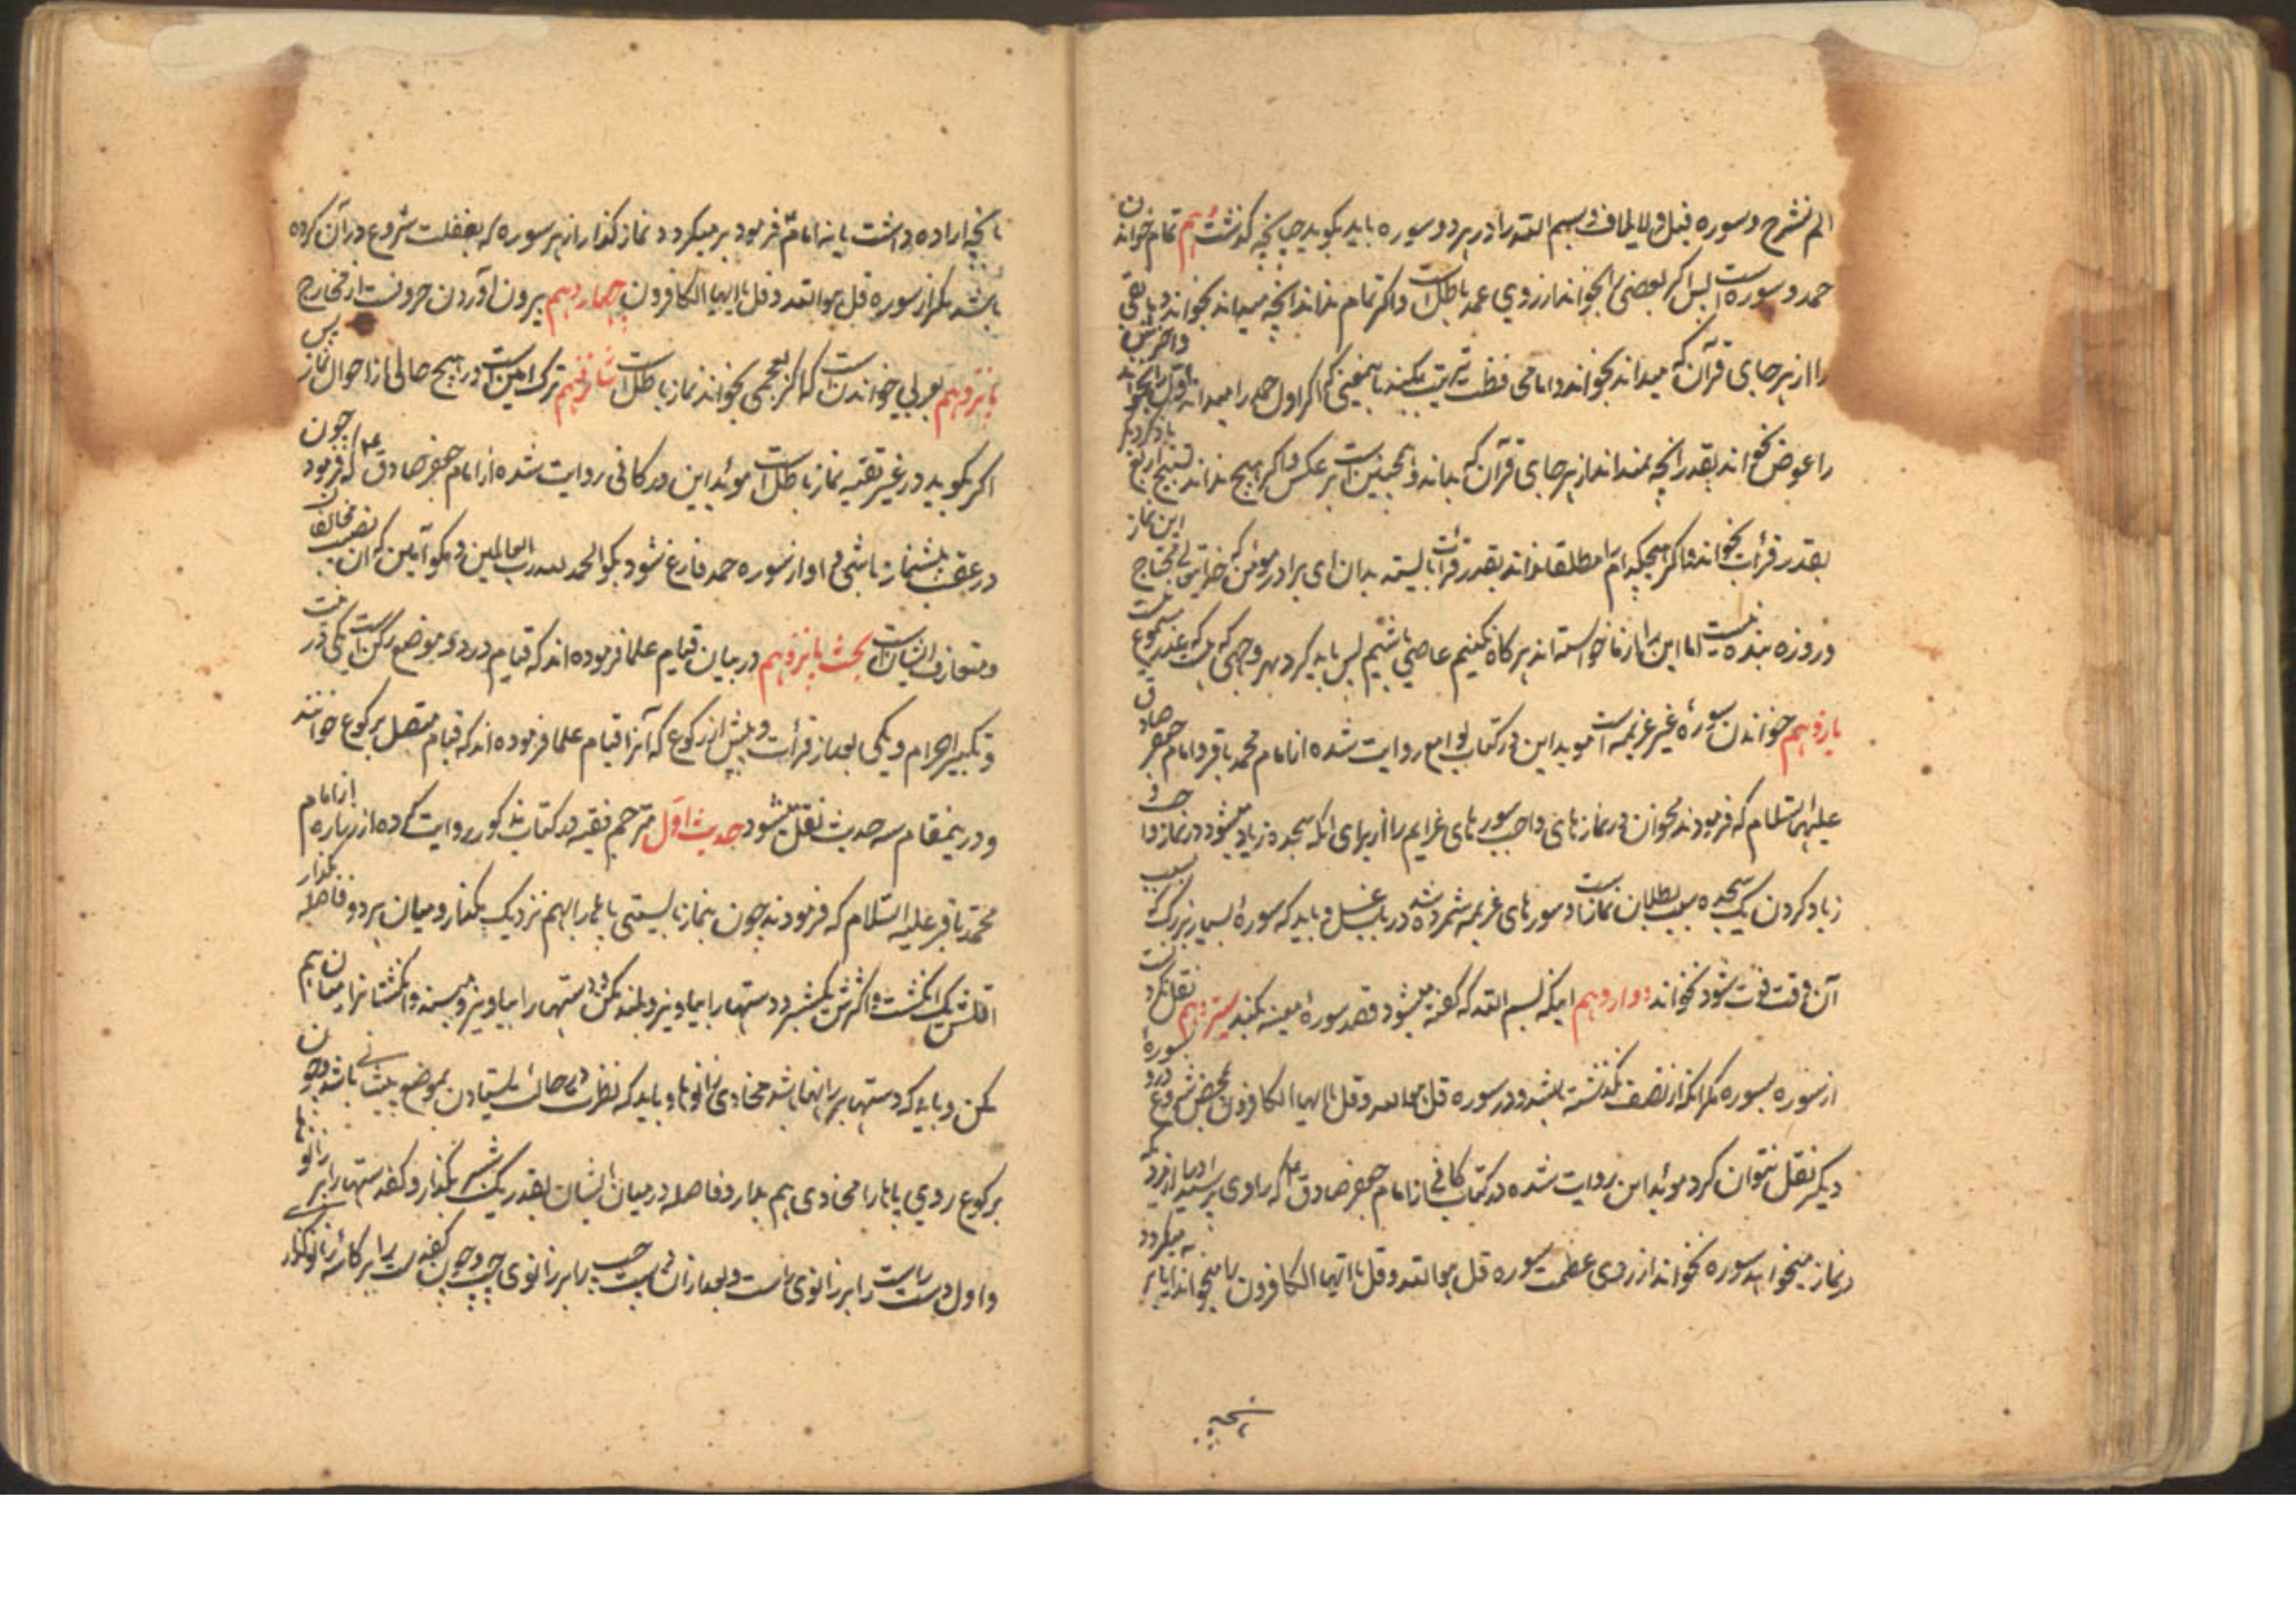 الم نشرح و سوره فیل و لایلاف و بسم الله را در هر دو سوره باید بگوید چنانچه گذشت دهم تمام خواندن
حمد و سوره است پس اگر بعضی را نخواند از روی عمد باطل است و اگر تمام نداند آنچه میداند بخواند و باقی
را از هر جای قرآن که میداند بخواند و اما محافظت ترتیب بکند باین معنی که اگر اول حمد را میداند اول را بخواند و آخرش
را عوض بخواند بقدر آنچه نمیداند از هر جای قرآن که بداند و همچنین است بر عکس و اگر هیچ نداند تسبیح اربع
بقدر قرأت بخواند و اگر هیچکدام را مطلقا نداند بقدر قرأت بایستد بدان ای برادر مؤمن که خدایتعالی محتاج این نماز
و روزه بنده نیست اما این را از ما خواسته اند هر گاه نکنیم عاصی باشیم پس باید کرد بهر وجهی که
یازدهم خواندن سورهٔ غیر عزیمه است موید این در کتاب لوامع روایت شده از امام محمد باقر و امام جعفر صادق
علیهما السلام که فرمودند مخوان در نمازهای واجب سورهای عزایم را از برای آنکه سجده زیاد میشود در نماز واجب و
زیاد کردن یک سجده سبب بطلان نماز است و سورهای عزیمه شمرده شد در باب غسل و باید که سورهٔ بسیار بزرگ که سبب
آن وقت فوت شود نخواند دوازدهم اینکه بسم الله که گفته میشود قصد سورهٔ معینه بکند سیزدهم نقل نکردنست
از سوره بسوره مگر آنکه از نصف نگذشته باشد و در سوره قل هو الله و قل یا ایها الکافرون بمحض شروع در او بسورهٔ
دیگر نقل نتوان کرد مؤید این روایت شده در کتاب کافی از امام جعفر صادق ع که راوی پرسید از او که
در نماز میخواهد سوره بخواند از روی عظمت سوره قل هو الله و قل یا ایها الکافرون را میخواند ایا بر میگردد به
نچه
بانچه اراده داشت یا نه امام ع فرمود بر میگردد نماز گذار از هر سوره که بغفلت شروع در آن کرده
باشد مگر از سوره قل هو الله و قل یا ایها الکافرون چهاردهم بیرون آوردن حروفست از مخارج
پانزدهم بعربی خواندن است که اگر بعجمی بخواند نماز باطل است شانزدهم ترک آمین است در هیچ حالی از احوال نماز پس
اگر بگوید در غیر تقیه نماز باطل است مؤید این در کافی روایت شده از امام جعفر صادق ع که فرمود چون
در عقب پیشنماز باشی و او از سوره حمد فارغ شود بگو الحمد لله رب العالمین و مگو آمین که آن مخالفان
و متعارف ایشان است بحث پانزدهم در بیان قیام علما فرموده اند که قیام در دو موضع رکن است یکی در وقت
و تکبیر احرام و یکی بعد از قرأت و پیش از رکوع که آنرا قیام علما فرموده اند که قیام متصل برکوع خوانند
و در ینمقام سه حدیث نقل میشود حدیث اول مترجم فقیه در کتاب مذکور روایت کرده از زراره از امام
محمد باقر علیه السلام که فرمودند چون بنماز بایستی پاها را بهم نزدیک مگذار و میان هر دو فاصله بگذار
اقلش یک انگشت و اکثرش یکشبر و دستها را بیاویز و بلند مکن و دستها را بیاویز و مبند و انگشتانرا میان هم
مکن و باید که دستها بر رانها باشد محاذی زانوها و باید که نظرت در حالت ایستادن بموضع پیشانی باشد و چون
برکوع روی پاها را محاذی هم بدار و فاصله در میان ایشان بقدر یک شبر بگذار و کف دستها را بر زانوها
و اول دست راست را بر زانوی راست و بعد از آن دست چپ را بر زانوی چپ و چون کف دست را بر کاسه زانو گذار